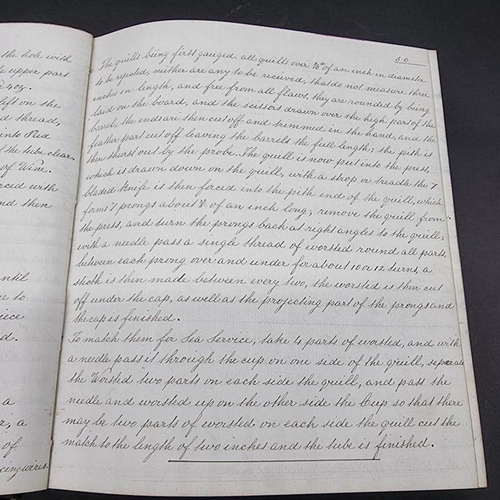 the hole with
e upper part
left on the
d thread,
into Red
the tube clear
of Wire.
rced with
nd then
until
e to
piece
d.
a
z, a
of
cing wires.
50
The quills being first gauged all quills over of an inch in diameter
to be rejected, neither are any to be received, that do not measure three
inches in length, and free from all flaws, they are rounded by being
laid on the board, and the scissors drawn over the high part of the
barrels, the ends are then cut off and trimmed in the hand, and the
feather part cut off leaving the barrels the full length; the pith is
then thrust out by the probe. The quill is now put into the press,
which is drawn down on the quill, with a strop or treadle the 7
bladed Knife is then forced into the pith end of the quill, which
forms 7 prongs about of an inch long; remove the quill from
the press, and turn the prongs back at right angles to the quill;
with a needle pass a single thread of worsted round all parts,
between each prong over and under for about 10 or 12 turns, a
stitch is then made between every two, the worsted is then cut
off under the cap, as well as the projecting part of the prongs and
the cap is finished.
To match them for Sea Service, take 4 parts of worsted, and with
a needle pass it through the cup on one side of the quill, separate
the Worsted two parts on each side the quill, and pass the
needle and worsted up on the other side the Cup so that there
may be two parts of worsted on each side the quill cut the
match to the length of two inches and the tube is finished.